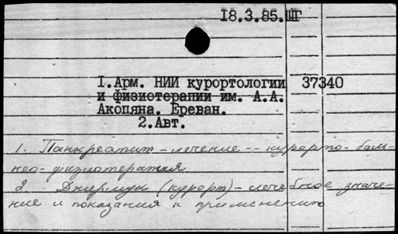 18.3.85.III
1.Арм. НИИ курортологии 37340
и физиотерапии им. А.А.
Акопяна. Ереван.
2.Авт.
1. Панкреатит – лечение – курорто-баль-
нео-физиотерапия
2. Джермук (курорт) – лечебное значе-
ние и показания к применению